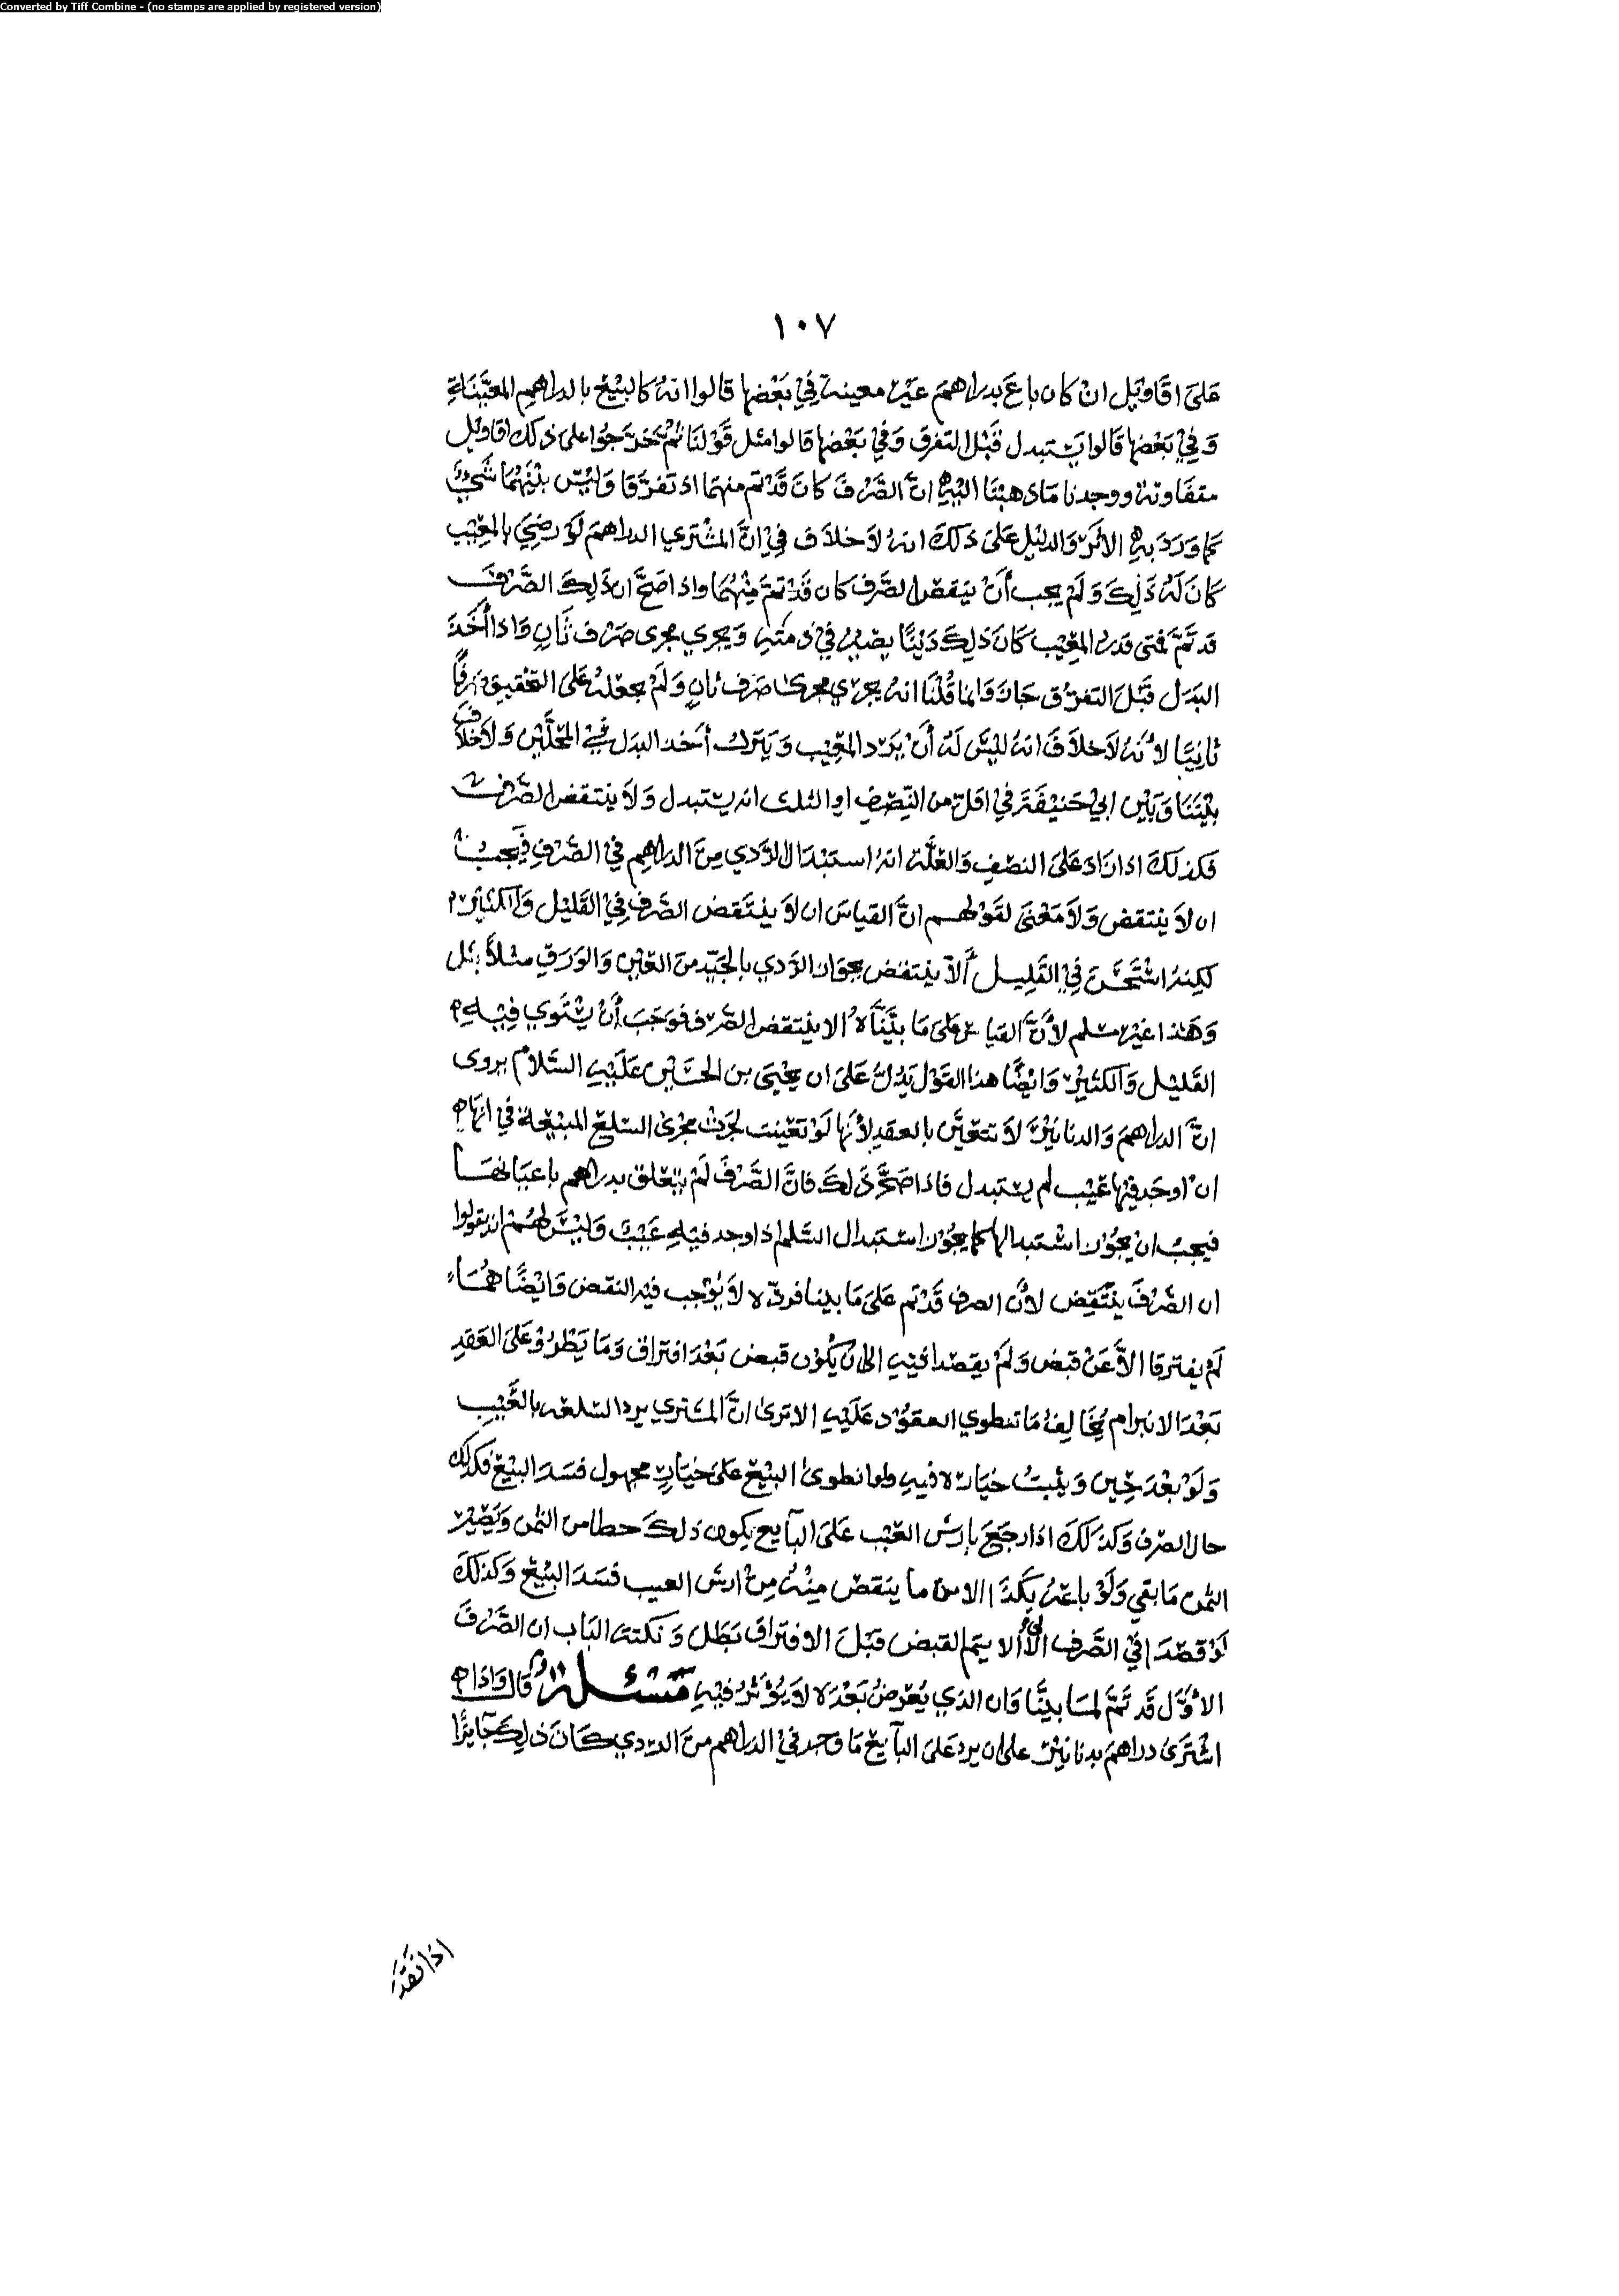 Converted by Tiff Combine - (no stamps are applied by registered version)
١٠٧
عَلىَ اقَاويْل انْ كان باعَ بدراهمَ غَيْر معينة فِيْ بَعْضها قالوا انهُ كالبَيْعْ بالدراهِمِ المعَيَّنَاةِ
وَفيْ بَعْضها قَالوا يَسْتبدل قَبْل التفرق وَفيْ بَعْضها قالوا مثل قَوْلنَا ثُمْ تَخرّجوُا على ذلك اقاويْل
متفَاوتة ووجدنا مَا ذهبْنَا اليْهِ انَّ الصَّرْفَ كانَ قَدْ تم منهمَا اذ تفرّقَا وَليْسَ بيْنهُمَا شَيْءٌ
كما وَرَدَ بهِ الاثَر وَالدليْل عَلىَ ذلكَ انهُ لاَ خلاَف فيْ انَّ المشْتري الدراهمَ لَوْ رضِيَ بالمعِيْبِ
كانَ لهُ ذَلِكَ وَلمْ يجب أنْ ينقض الصَّرف كان قَدْ تمَّ مِنْهُمَا واذا صَحَّ ان ذَلِكَ الصَّرْفَ
قد تَمَّ فمتى قدر المعِيْب كانَ ذَلِكَ دَيْنًا يصيْر فيْ ذمتهِ وَيجري مجرى صَرْف ثَانٍ وَاذا أخَذَ
البَدَل قَبْلَ التفرّق جازَ وَانما قُلْنَا انهُ يجري مجرىَ صَرْف ثانٍ وَلمْ نجعلهُ عَلىَ التحْقيق صَرْفًا
ثانِيًا لأنهُ لاَ خلاَفَ انهُ ليْسَ لَهُ أنْ يَرّد المعِيْب وَيَتركَ أخذ البدَل فِيْ المحَلَّيْن وَلاَ خلاَف
بيْنَنَا وَبَيْن ابيْ حَنيْفَة فيْ اقل من النِّصْفِ او الثلث انه يستبدل وَلاَ ينتقض الصَّرف
فكذلكَ اذا زادَ عَلىَ النصْفِ وَالعلَّة انهُ استبْدَال الرَّدي مِنَ الدراهِم فيْ الصَّرْفِ فيَجبُ
ان لاَ ينتقض وَلاَ مَعْنىَ لقَوْلهم انَّ القيَاسَ ان لاَ ينْتَقض الصَّرْف فِيْ القَليْل وَالكثيْر
لكِنهُ اسْتَحْسَنَ فِيْ القَلِيل ألاَّ ينتقض بجوَاز الرَّدي بالجَيّد منَ العَيْن وَالوَرَقِ مثْلاً بمثل
وَهَذا غيْر مسَلم لأنَّ القيَاسَ عَلىَ مَا بيَّنَّاهُ الا ينتقض الصَّرف فوَجَبَ أنْ يَسْتَوي فِيْهِ
القَليْل وَالكثِيْرُ وَايْضًا هذا القَوْل يَدُلّ عَلىَ ان يحْيىَ بن الحسَيْن عَليْهِ السَّلام يروى
انَّ الدراهمَ وَالدنانيْرَ لاَ تتعَيَّن بالعقدِ لأنها لوْ تعَينت لجرَتْ مجْرىَ السّلع المبيْعة في انها
انْ اوجَد فيْها عَيْب لم يستبدل فاذا صَحَّ ذَلكَ فانَّ الصَّرْفَ لمْ يتعَلق بدراهم باعيَانهَا
فيَجبُ ان يجُوْز اسْتبدالها كما يجُوْز استبدال السَّلم اذا وجد فيْهِ عَيْب وَليْسَ لهُمْ ان يقولوا
ان الصَّرْفَ ينْتَقِض لأنَّ الصرف قَدْ تم عَلىَ مَا بينا فردّه لاَ يُوْجب فيْه النقض وَايْضًا همَا
لمْ يفترقا الاَّ عَنْ قبض وَلمْ يقصدا فيْهِ الى ان يكُوْن قبض بَعْدَ افتراق وَمَا يَطْرؤ عَلىَ العَقدِ
بَعْدَ الابْرام يُخالِفُ مَا تنطوي العقوْد عَليْهِ الا ترىَ انَّ المشتري يرد السّلعَة بالعَيْبِ
وَلوْ بعْدَ حِيْن وَيثبتُ خيَاره فيهِ ولو انطوىَ البَيْع عَلىَ خيَارٍ مجهول فسَدَ البيْع فكذلك
حال الصّرف وَكذلكَ اذا رجَعَ بارش العَيْب عَلىَ البآيع يكون ذلكَ حطا من الثمن وَيَصِيْر
الثمن مَا بقيَ وَلوْ باعَهُ بكذَا الا من ما ينقص مِنْهُ مِنْ ارش العيب فسَدَ البيْع وَكذلكَ
لوْ قصَدَا فيْ الصَّرف الىَ ألا يتم القبض قبْلَ الافتراق بَطَل وَنكتة البَاب ان الصَّرْفَ
الأوَّل قَد تَمَّ لمَا بينَّا وَان الذي يَعْرضُ بَعْدَه لاَ يُؤثّرُ فيْهِ مَسْئلة قالَ وَاذا
اشْتَرَىَ دراهمَ بدنانيْر على ان يرد عَلىَ البآيع مَا وجد فيْ الدَراهم منَ الرّدي كَانَ ذلِكَ جآيزًا
اذا نقدَ